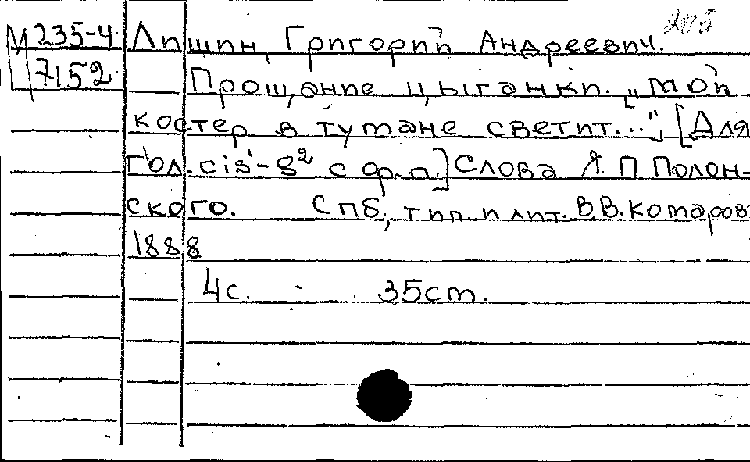 205
М 235-4 Лишин, Григорий Андреевич.
7152 Прощание цыганки. „Мой
костер в тумане светит...", [Для
гол. cis'-g² с ф.-п.] Слова Я. П. Полон-
ского. СПб, тип. и лит. В.В. Комаров
1888
4с. 35см.